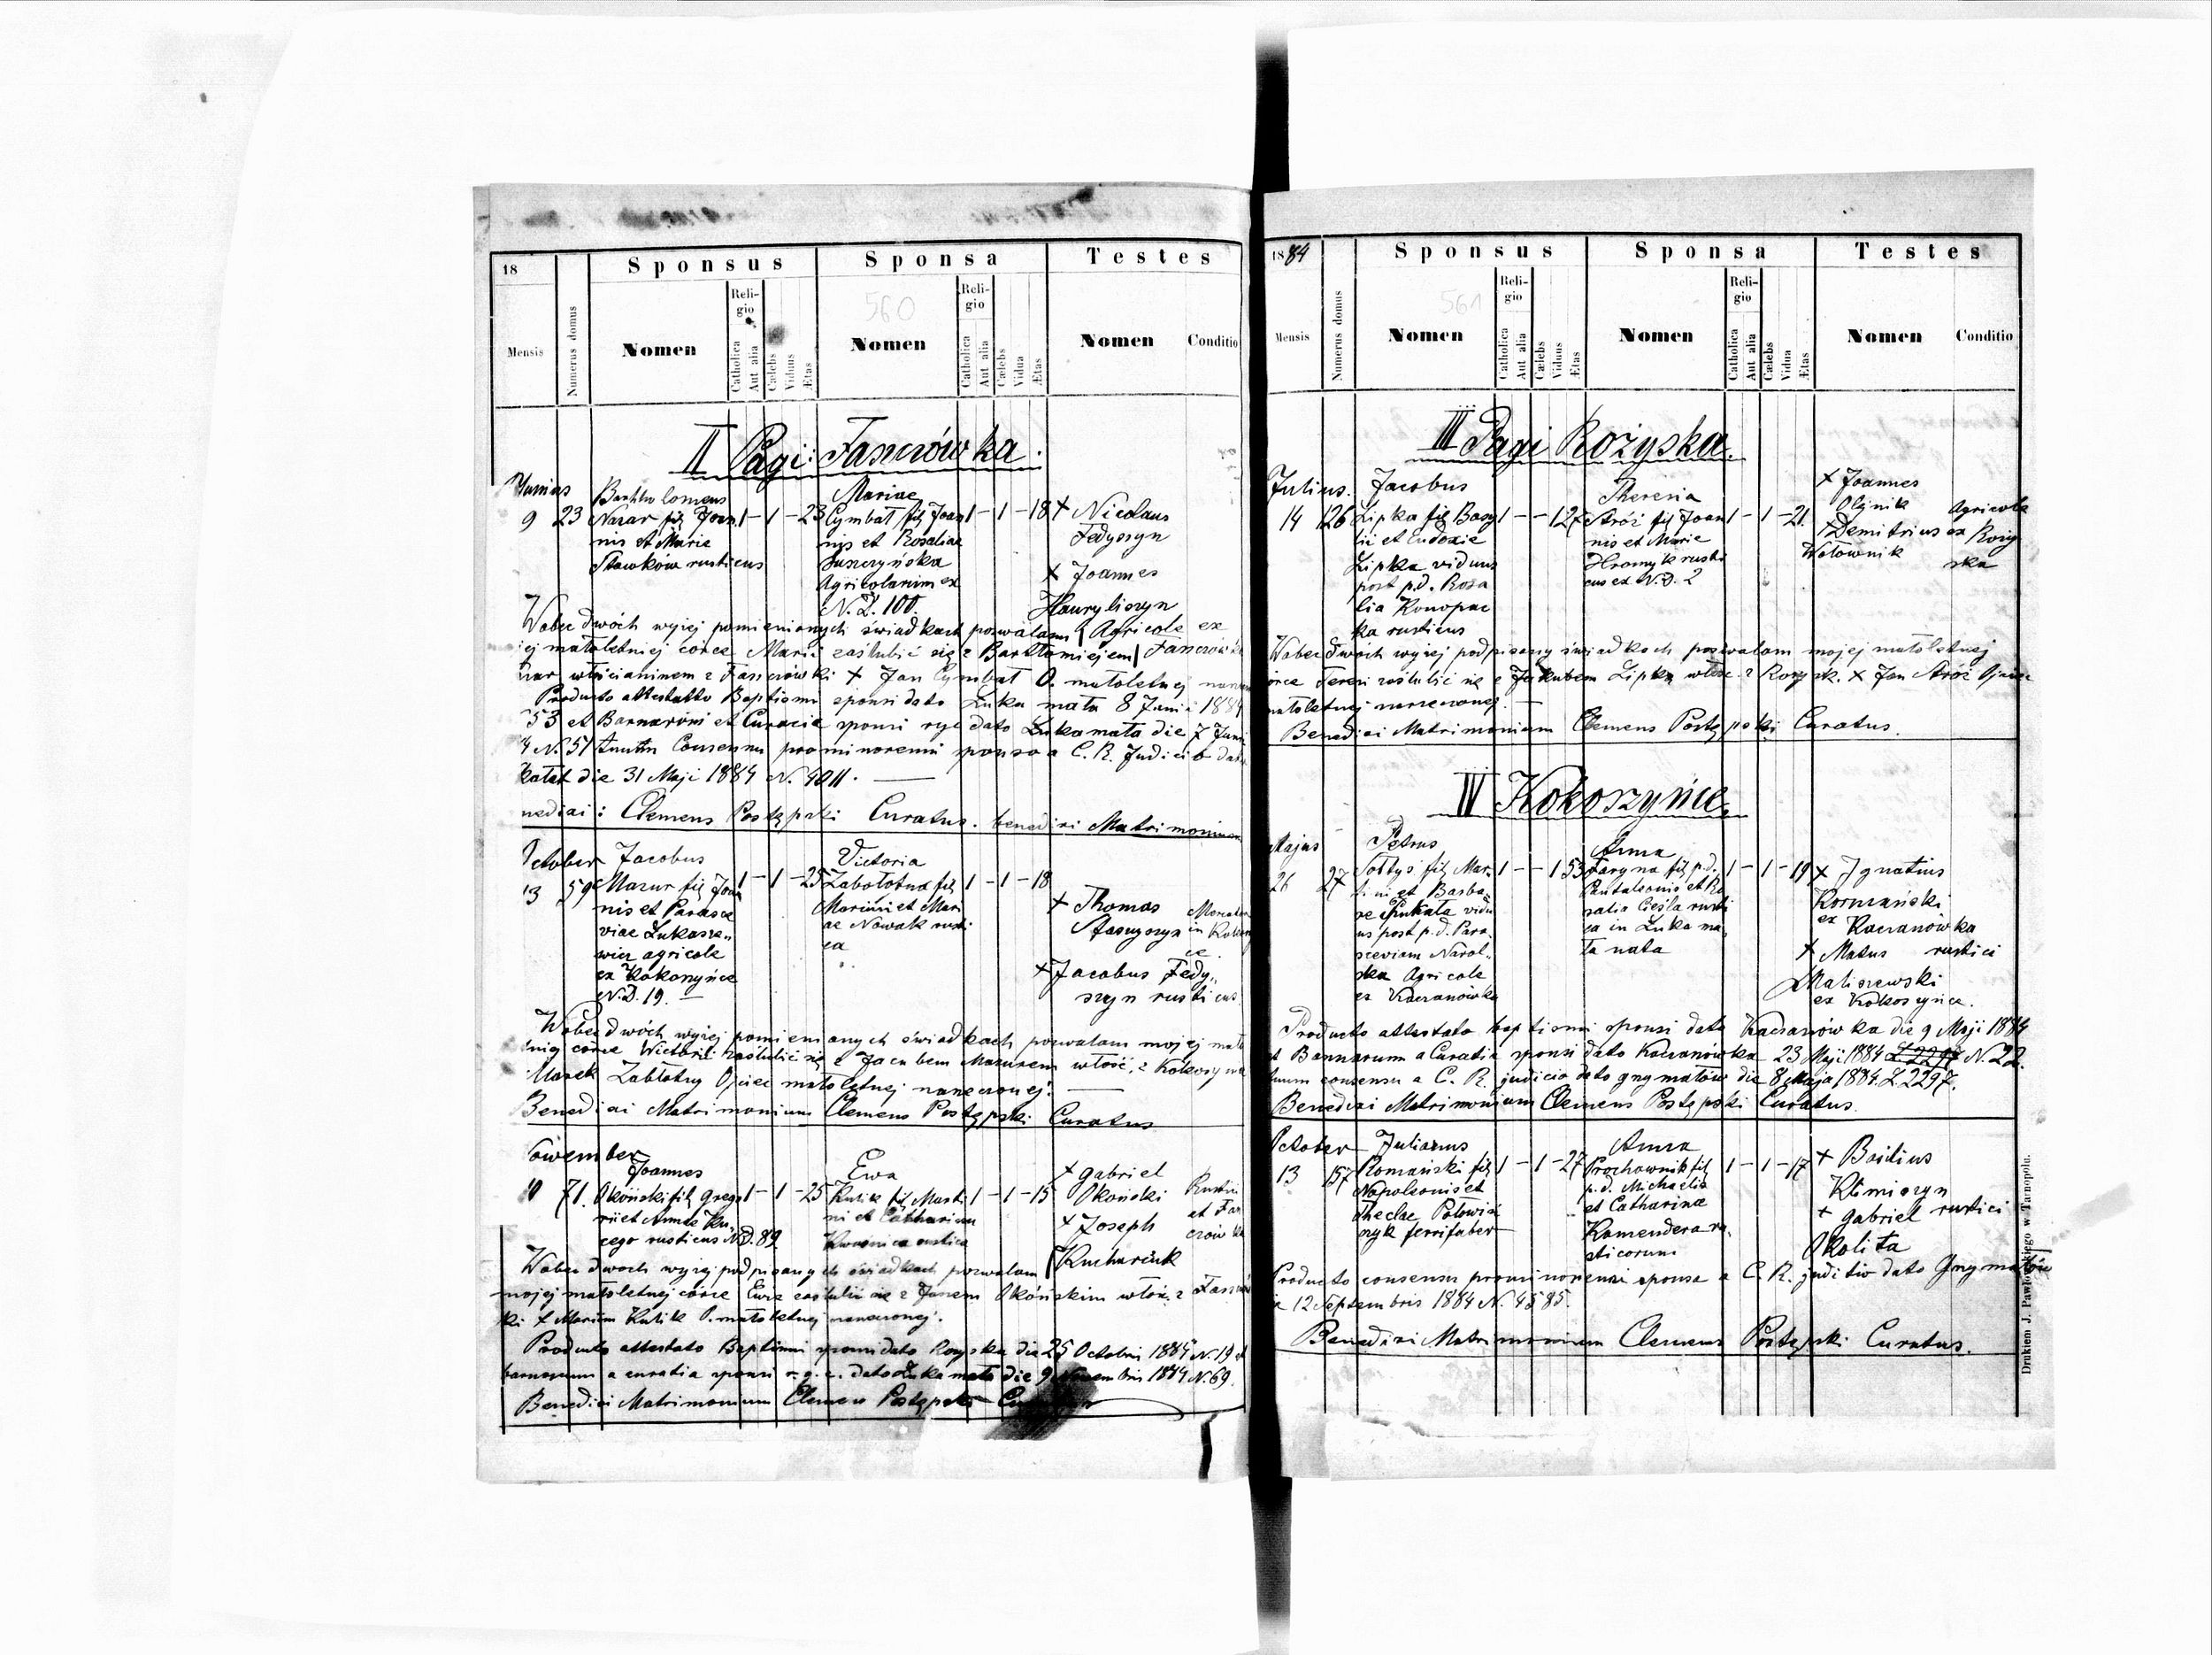 18
Sponsus
Sponsa
Testes
Mensis
Numerus domus
Nomen
Religio
Catholica
Aut alia
Cælebs
Viduus
Ætas
560
Nomen
Religio
Catholica
Aut alia
Cælebs
Vidua
Ætas
Nomen
Conditio
II Pagi: Faszczówka.
Junius
9 23
Bartholomeus
Nazar fil Joan
nis et Marie
Stawków rusticus
1 - 1 - 23
Mariae
Cymbał fil Joan
nis et Rosaliae
Suszczyńska
Agricolarum ex
N. D. 100.
1 - 1 - 18
+ Nicolaus
Fedyszyn
+ Joannes
Hauryliszyn
Agricole ex
Wobec dwóch wyżej pomienionych świadkach pozwalam
jej małoletniej córce Marii zaślubić się z Bartłomiejem
zar włościaninem z Faszczówki + Jan Cymbał O. małoletnej
Producto attestatto Baptismi sponsi dato Łuka mała 8 Junii 1884
53 et Bannarum et Curacia sponsi dato Łuka mała die 7 Junii
4 N. 51 Consensu pro minorenni sponso a C. R. Judicio dato
kałat die 31 Maji 1884 N. 4011.
nedixi: Clemens Postępski Curatus. benedixi Matrimonium
October
13 59
Jacobus
Mazur fil Joan
nis et Parasce
viae Łukasze
wicz agricole
ex Kokoszyńce
N.D. 19.
1 - 1 - 25
Victoria
Zabołotna fil
Marcini et Mari
ae Nowak rusti
ca
1 - 1 - 18
+ Thomas
Staszyszyn
+ Jacobus Fedy
szyn rusticus
Wobec dwóch wyżej pomienianych świadkach pozwalam mojej mało
tniej córce Wictorii zaślubić się z Jacubem Mazurem włość. z Kokoszyniec
Marek Zabłotny Ojciec małoletnej narzeczonej.
Benedixi Matrimonium Clemens Postępski Curatus
November
10 71.
Joannes
Okoński fil Grego
rii et Annae Ku
cego rusticus N.D. 89
1 - 1 - 25
Ewa
Kulik fil Marti
ni et Catharina
rustica
1 - 1 - 15
+ Gabriel
Okoński
+ Joseph
Kucharčuk
Wobec dwoch wyżej podpisanych świadkach pozwalam
mojej małoletnej córce Ewie zaślubić się z Janem Okońskim włoś. z Faszczów
ki + Marcin Kulik O. małoletnej narzeczonej.
Producto attestato Baptismi sponsi dato Rożyska die 25 Octobris 1884 N. 19 et
bannorum a curatia sponsi r. g. c. dato Łuka mała die 9 Novembris 1884 N. 69.
Benedixi Matrimonium Clemens Postępski Curatus
1884
Sponsus
Sponsa
Testes
Mensis
Numerus domus
Nomen
561
Religio
Catholica
Aut alia
Cælebs
Viduus
Ætas
Nomen
Religio
Catholica
Aut alia
Cælebs
Vidua
Ætas
Nomen
Conditio
III Pagi Rożyska.
Julius.
14 126
Jacobus
Lipka fil Basy
lii et Eudoxie
Lipka viduus
post p.d. Rosa
lia Konopac
ka rusticus
1 - - 1 27
Theresia
Stróż fil Joan
nis et Marie
Hromyk rusti
cus ex N.D. 2
1 - 1 - 21.
+ Joannes
Olijnik
+ Demitrius
Wołownik
Agricole
ex Roży
ska
Wobec dwoch wyżej podpisany świadkach pozwalam mojej małoletniej
córce Teresi zaślubić się z Jakubem Lipką włośc. z Rożysk. + Jan Stróż Ojciec
małoletnej narzeczonej.
Benedixi Matrimonium Clemens Postępski Curatus.
IV Kokoszyńce.
Majus
26 27
Petrus
Sołtys fil Mar
tini et Barba
re vidu
us post p.d. Para
sceviam Narol
ska Agricole
ex Kaczanówka
1 - - 1 53
Anna
Faryna fil p.d.
Pantaleonis et Ro
salia Cieśla rusti
ca in Łuka ma
ła nata
1 - 1 - 19
+ Ignatius
Kormański
ex Kaczanówka
+ Matus rustici
Maliszewski
ex Kokoszyńce.
Producto attestato baptismi sponsi dato Kaczanówka die 9 Maji 1884
et Bannarum a Curatia sponsi dato Kaczanówka 23 Maji 1884 Z. 2297 N. 22.
tuum consensu a C. R. judicio dato Grzymałów die 8 Maja 1884. Z. 2297.
Benedixi Matrimonium Clemens Postępski Curatus.
October
13 157
Julianus
Romański fil
Napoleonis et
Theclae Połowi
szyk ferrifaber
1 - 1 - 27
Anna
Prochownik fil
p.d. Michaelis
et Catharinae
Komendera ru
sticorum
1 - 1 - 17
+ Basilius
Klimiszyn
+ Gabriel rustici
Okolita
Producto consensu pro minorenni sponsa a C. R. juditio dato Grzymałów
12 Septembris 1884 N. 4585.
Benedixi Matrimonium Clemens Postępski Curatus.
Drukiem J. Pawłowskiego w Tarnopolu.